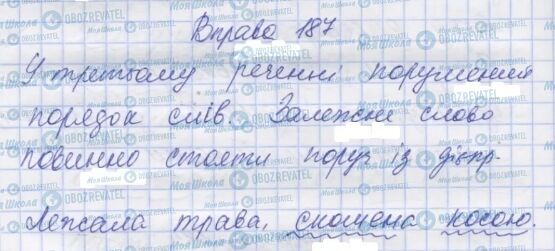 Вправа 187
У третьому реченні порушений
порядок слів. Залежне слово
повинно стояти поруч із дієпр.
Лежала трава, скошена косою.